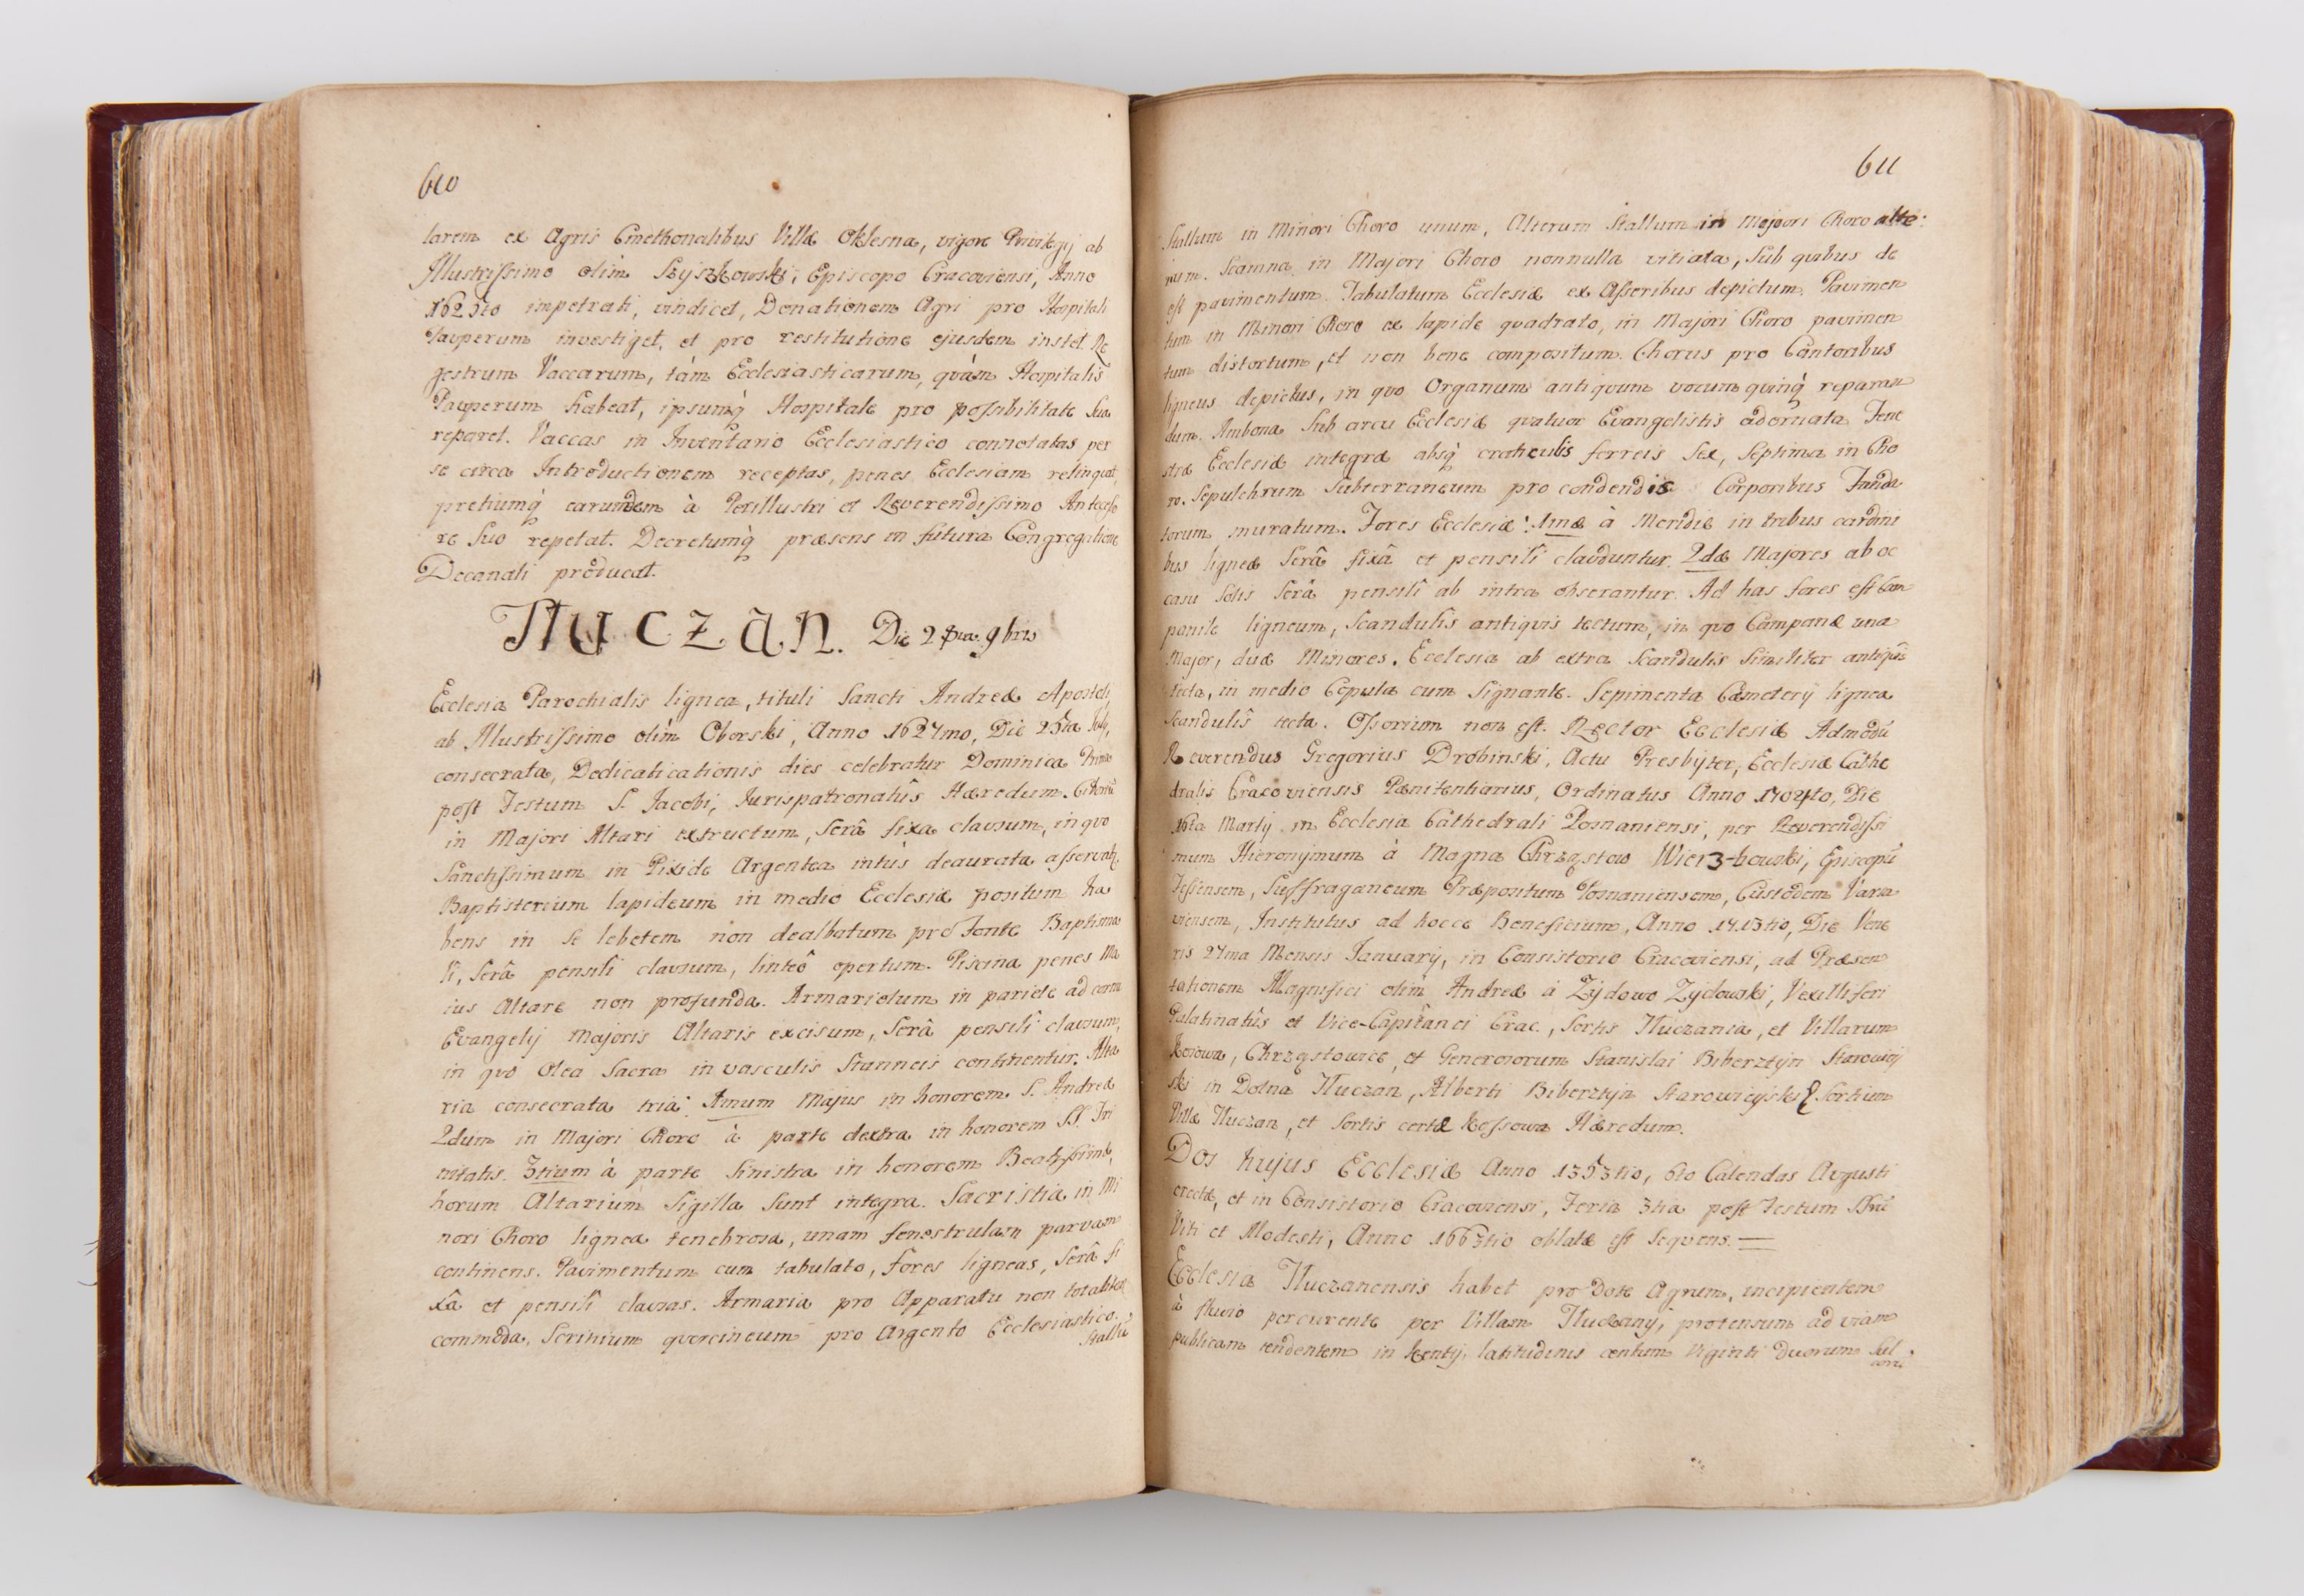 610
larem ex Agris Cmethonalibus Villæ Oklesna, vigore Privilegij ab
Illustrissimo olim Szyszkowski, Episcopo Cracoviensi, Anno
impetrati, vindicet, Donationem Agri pro Hospitali
Pauperum investiget, et pro restitutione ejusdem instet. Re
gestrum Vaccarum, tàm Ecclesiasticarum, quàm Hospitalis
Pauperum habeat, ipsumq́ Hospitale pro possibilitate sua
reparet. Vaccas in Inventario Ecclesiastico connotatas per
se circa Introductionem receptas, penes Ecclesiam relinquat,
pretiumq́ earundem à Perillustri et Reverendissimo Antecesso
re suo repetat. Decretumq́ præsens in futura Congregatione
Decanali producat.
Tłuczan. Die 2da 9bris
Ecclesia Parochialis lignea, tituli Sancti Andreæ Apostoli,
ab Illustrissimo olim Oborski, Anno 1627mo, Die 25ta
consecrata, Dedicaticationis dies celebratur Dominica Prima
post Festum S. Jacobi, Jurispatronatûs Hæredum. Ciboriũ
in Majori Altari extructum, serâ fixa clausum, in quo
Sanctissimum in Pixide Argentea intùs deaurata asservatꝛ.
Baptisterium lapideum in medio Ecclesiæ positum ha
bens in se lebetem non dealbatum pro Fonte Baptisma
li, serâ pensili clausum, linteô opertum. Piscina penes Ma
ius Altare non profunda. Armariolum in pariete ad cornu
Evangelij Majoris Altaris excisum, serâ pensilî clausum,
in quo Olea Sacra in vasculis stanneis continentur. Alta
ria consecrata tria. 1mum Majus in honorem S. Andreæ
2dum in Majori Choro à parte dextra in honorem SS. Tri
nitatis. 3tium à parte sinistra in honorem Beatissimæ,
horum Altarium Sigilla sunt integra. Sacristia in Mi
nori Choro lignea tenebrosa, unam fenestrulam parvam
continens. Pavimentum cum tabulato, fores ligneas, serâ fi
xâ et pensili clausas. Armaria pro Apparatu non totaliter
commoda. Scrinium quercineum pro Argento Ecclesiastico.
Stallũ
611
Stallum in Minori Choro unum, Alterum Stallum in Majori Choro alte:
rum. Scamna in Majori Choro nonnulla vitiata, sub quibus de
est pavimentum. Tabulatum Ecclesiæ ex Asseribus depictum. Pavimen
tum in Minori Choro ex lapide quadrato, in Majori Choro pavimen
tum distortum, et non bene compositum. Chorus pro Cantoribus
ligneus depictus, in quo Organum antiquum vocum quinq́ reparan
dum. Ambona sub arcu Ecclesiæ quatuor Evangelistis adornata. Fene
stræ Ecclesiæ integræ absq́ craticulis ferreis sex, septima in Cho
ro. Sepulchrum subterraneum pro condendis Corporibus Funda
torum muratum. Fores Ecclesiæ: 1mæ à Meridie in tribus cardini
bus ligneæ serâ fixâ et pensilî clauduntur. 2dæ Majores ab oc
casu Solis serâ pensilî ab intra obserantur. Ad has fores est Cam
panile ligneum, Scandulis antiquis tectum, in quo Campanæ una
Major, duæ Minores. Ecclesia ab extra Scandulis similiter antiquis
tecta, in medio Copula cum Signante. Sepimenta Cæmeterij lignea
Scandulis tecta. Ossorium non est. Rector Ecclesiæ Admodũ
Reverendus Gregorius Drobinski, Actu Presbyter, Ecclesiæ Cathe
dralis Cracoviensis Pænitentiarius, Ordinatus Anno 1704to, Die
16ta Martij in Ecclesia Cathedrali Posnaniensi, per Reverendissi
mum Hieronymum à Magna Chrząstow Wierzbowski, Episcopũ
Suffraganeum Præpositum Posnaniensem, Custodem Varsa
viensem, Institutus ad hocce Beneficium, Anno 1713tio, Die Vene
ris 27ma Mensis Januarij, in Consistorio Cracoviensi, ad Præsen
tationem Magnifici olim Andreæ à Zydowo Zydowski, Vexilliferi
Palatinatûs et Vice-Capitanei Crac., sortis Tłuczania, et Villarum
Kosowa, Chrząstowice, et Generosorum Stanislai Biberztyn Starowiey
ski in Dolna Tłuczan, Alberti Biberztyn Starowieyski Sortium
Villæ Tłuczan, et sortis certæ Kossowa Hæredum.
Dos hujus Ecclesiæ Anno 1353tio, 6to Calendas Augusti
erectæ, et in Consistorio Cracoviensi, Feria 3tia post Festum
Viti et Modesti, Anno 1663tio oblatæ est sequens.
Ecclesia Tłuczanensis habet pro Dote Agrum, incipientem
à fluvio percurrente per Villam Tłuczany, protensum ad viam
publicam tendentem in Kenty, latitudinis centum viginti duorum Sul
corũ